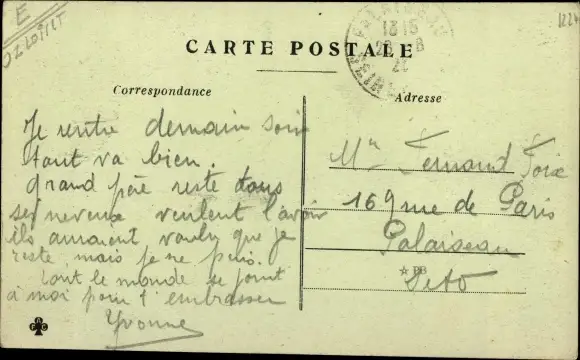 E
1224
13 15
28 - 8
CARTE POSTALE
Correspondance
Adresse
Je rentre demain soir
tout va bien.
Grand père reste tous
ses neveux veulent l'avoir
ils auraient voulu que je
reste mais je ne puis.
tout le monde se joint
à moi pour t'embrasser
Yvonne
Mr Fernand Foix
169 rue de Paris
Palaiseau
S et O